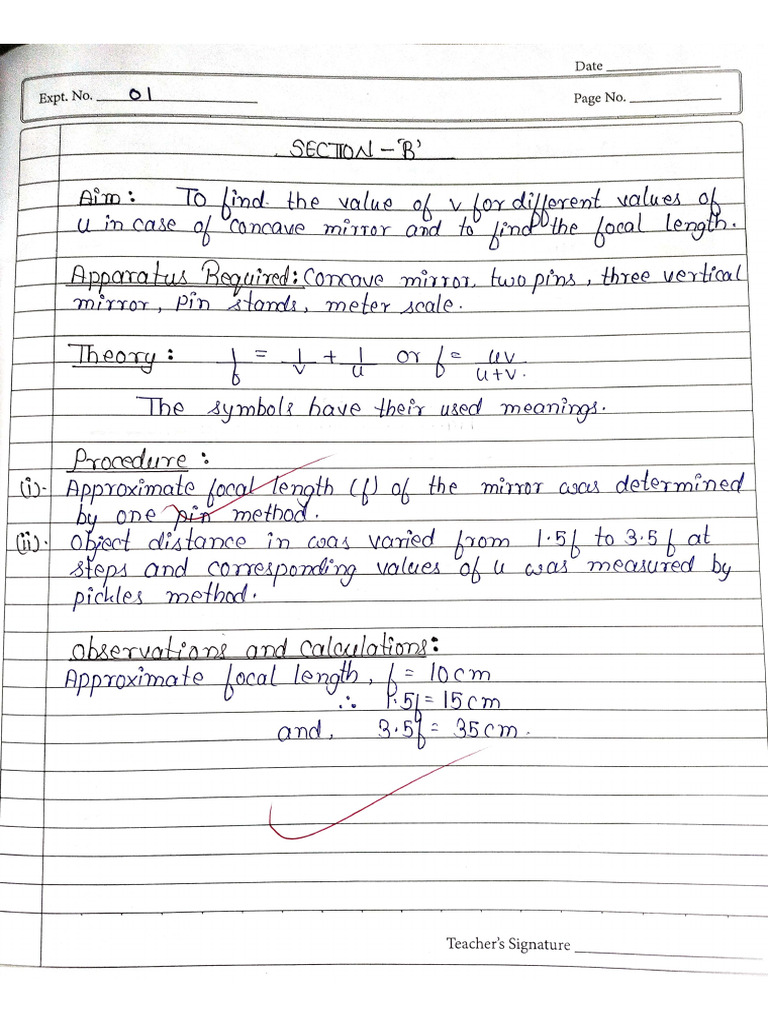 Date
Expt. No. 01
Page No.
SECTION - 'B'
Aim: To find the value of v for different values of
u in case of concave mirror and to find the focal length.
Apparatus Required: Concave mirror, two pins, three vertical
mirror, pin stands, meter scale.
Theory: 1/f = 1/v + 1/u or f = uv/u+v.
The symbols have their used meanings.
Procedure:
(i)- Approximate focal length (f) of the mirror was determined
by one pin method.
(ii)- Object distance in was varied from 1.5f to 3.5f at
steps and corresponding values of u was measured by
pickles method.
Observations and Calculations:
Approximate focal length, f = 10cm
∴ 1.5f = 15cm
and, 3.5f = 35cm.
Teacher's Signature